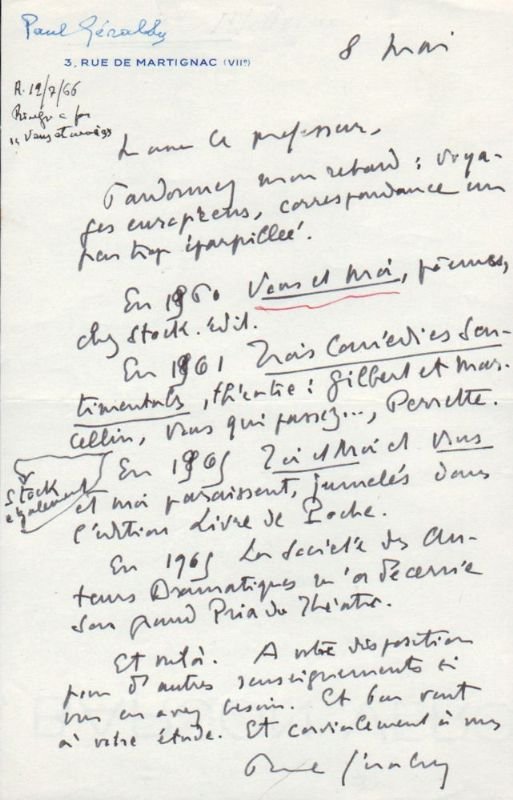 Paul Géraldy
3, RUE DE MARTIGNAC (VIIe)
8 Mai
R. 19/7/66
professeur,
Pardonnez mon retard : voya-
ges européens, correspondance un
peu trop éparpillée.
En 1960 Vous et Moi, poèmes,
chez Stock. édit.
En 1961 Trois Comédies Sen-
timentales, théâtre : Gilbert et Mar-
cellin, Vous qui passez..., Perrette.
Stock
également
En 1965 Toi et Moi et Vous
et moi paraissent, jumelés dans
l'édition Livre de Poche.
En 1965 La Société des Au-
teurs Dramatiques m'a décerné
son grand Prix du Théâtre.
Et voilà. A votre disposition
pour d'autres renseignements si
vous en avez besoin. Et bon vent
à votre étude. Et cordialement à vous
Paul Géraldy